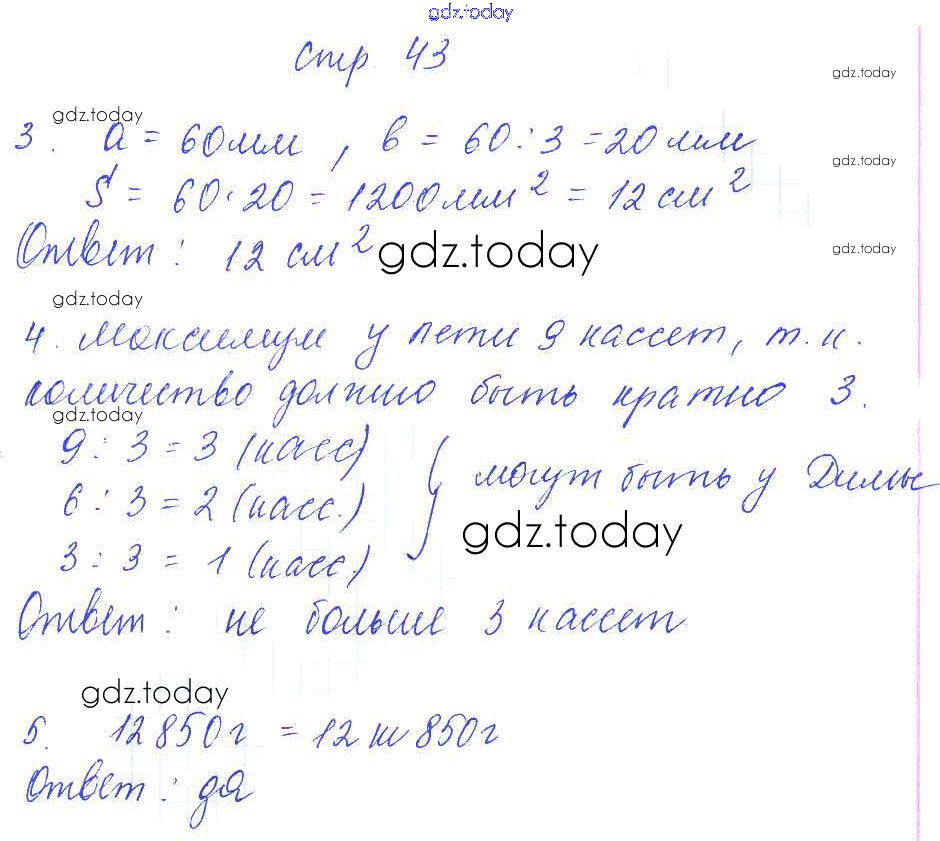 gdz.today
Стр. 43
gdz.today
gdz.today
3. a = 60 мм, в = 60 : 3 = 20 мм
gdz.today
S = 60 · 20 = 1200 мм² = 12 см²
Ответ: 12 см²
gdz.today
gdz.today
gdz.today
4. Максимум у пети 9 кассет, т.к.
количество должно быть кратно 3.
gdz.today
9 : 3 = 3 (касс)
6 : 3 = 2 (касс.) } могут быть у Димы
gdz.today
3 : 3 = 1 (касс.)
Ответ: не больше 3 кассет
gdz.today
5. 12850г = 12 кг 850г
Ответ: да